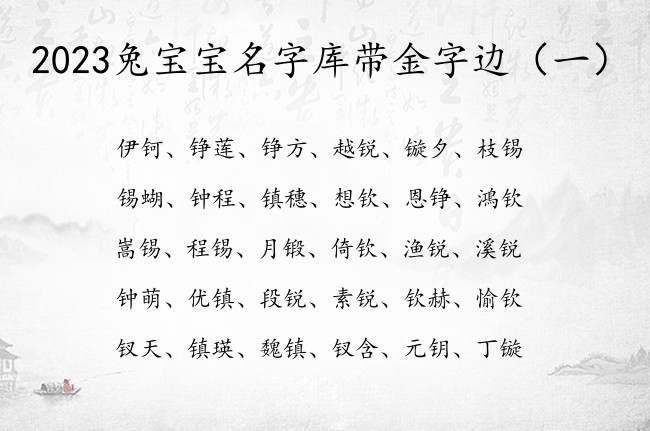 2023兔宝宝名字库带金字边（一）
伊钶、铮莲、铮方、越锐、镟夕、枝锡
锡蝴、钟程、镇穗、想钦、恩铮、鸿钦
嵩锡、程锡、月锻、倚钦、渔锐、溪锐
钟萌、优镇、段锐、素锐、钦赫、愉钦
钗天、镇瑛、魏镇、钗含、元钥、丁镟